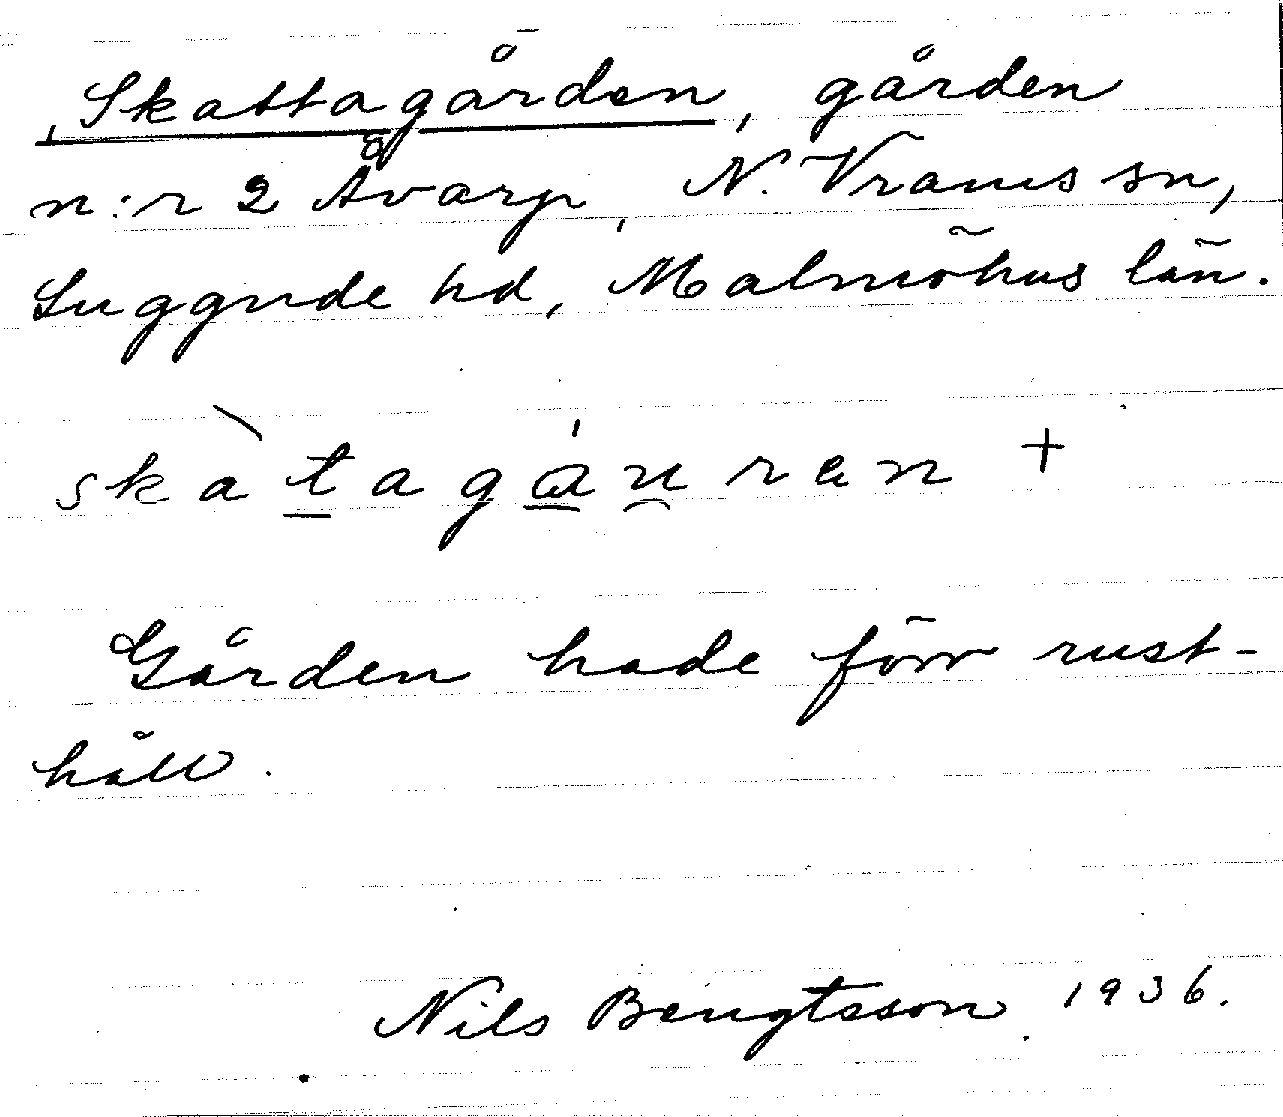 Skattagården, gården
n:r 2 Åvarp, N. Vrams sn,
Luggude hd, Malmöhus län.
skàtagáu̯ren +
Gården hade förr rust-
håll.
Nils Bengtsson 1936.